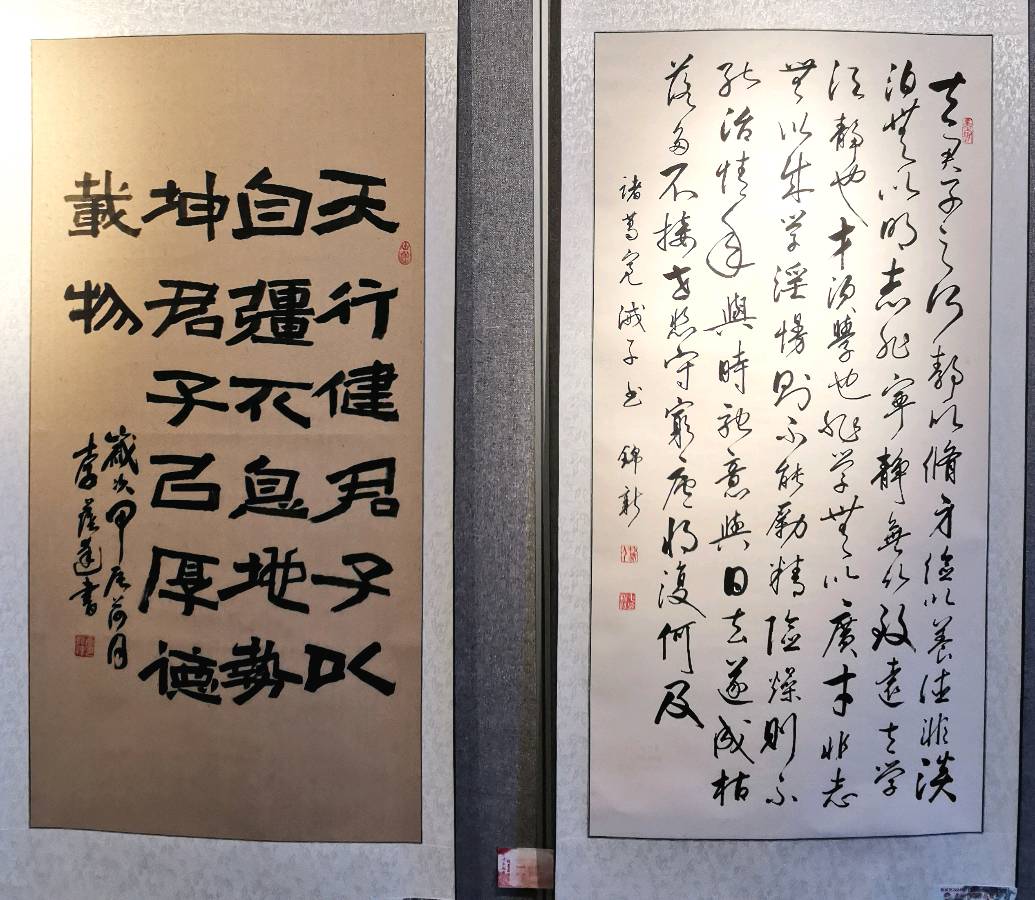 天行健君子以
自彊不息地勢
坤君子㠯厚德
載物
歲次甲辰荷月
李蔭達書
夫君子之行靜以脩身儉以養德非淡
泊無以明志非寧靜無以致遠夫学
須靜也才須學也非学無以廣才非志
無以成学淫慢則不能勵精險燥則不
能治性年與時馳意與日去遂成枯
落多不接世悲守窮廬將復何及
諸葛亮誡子書 錦新